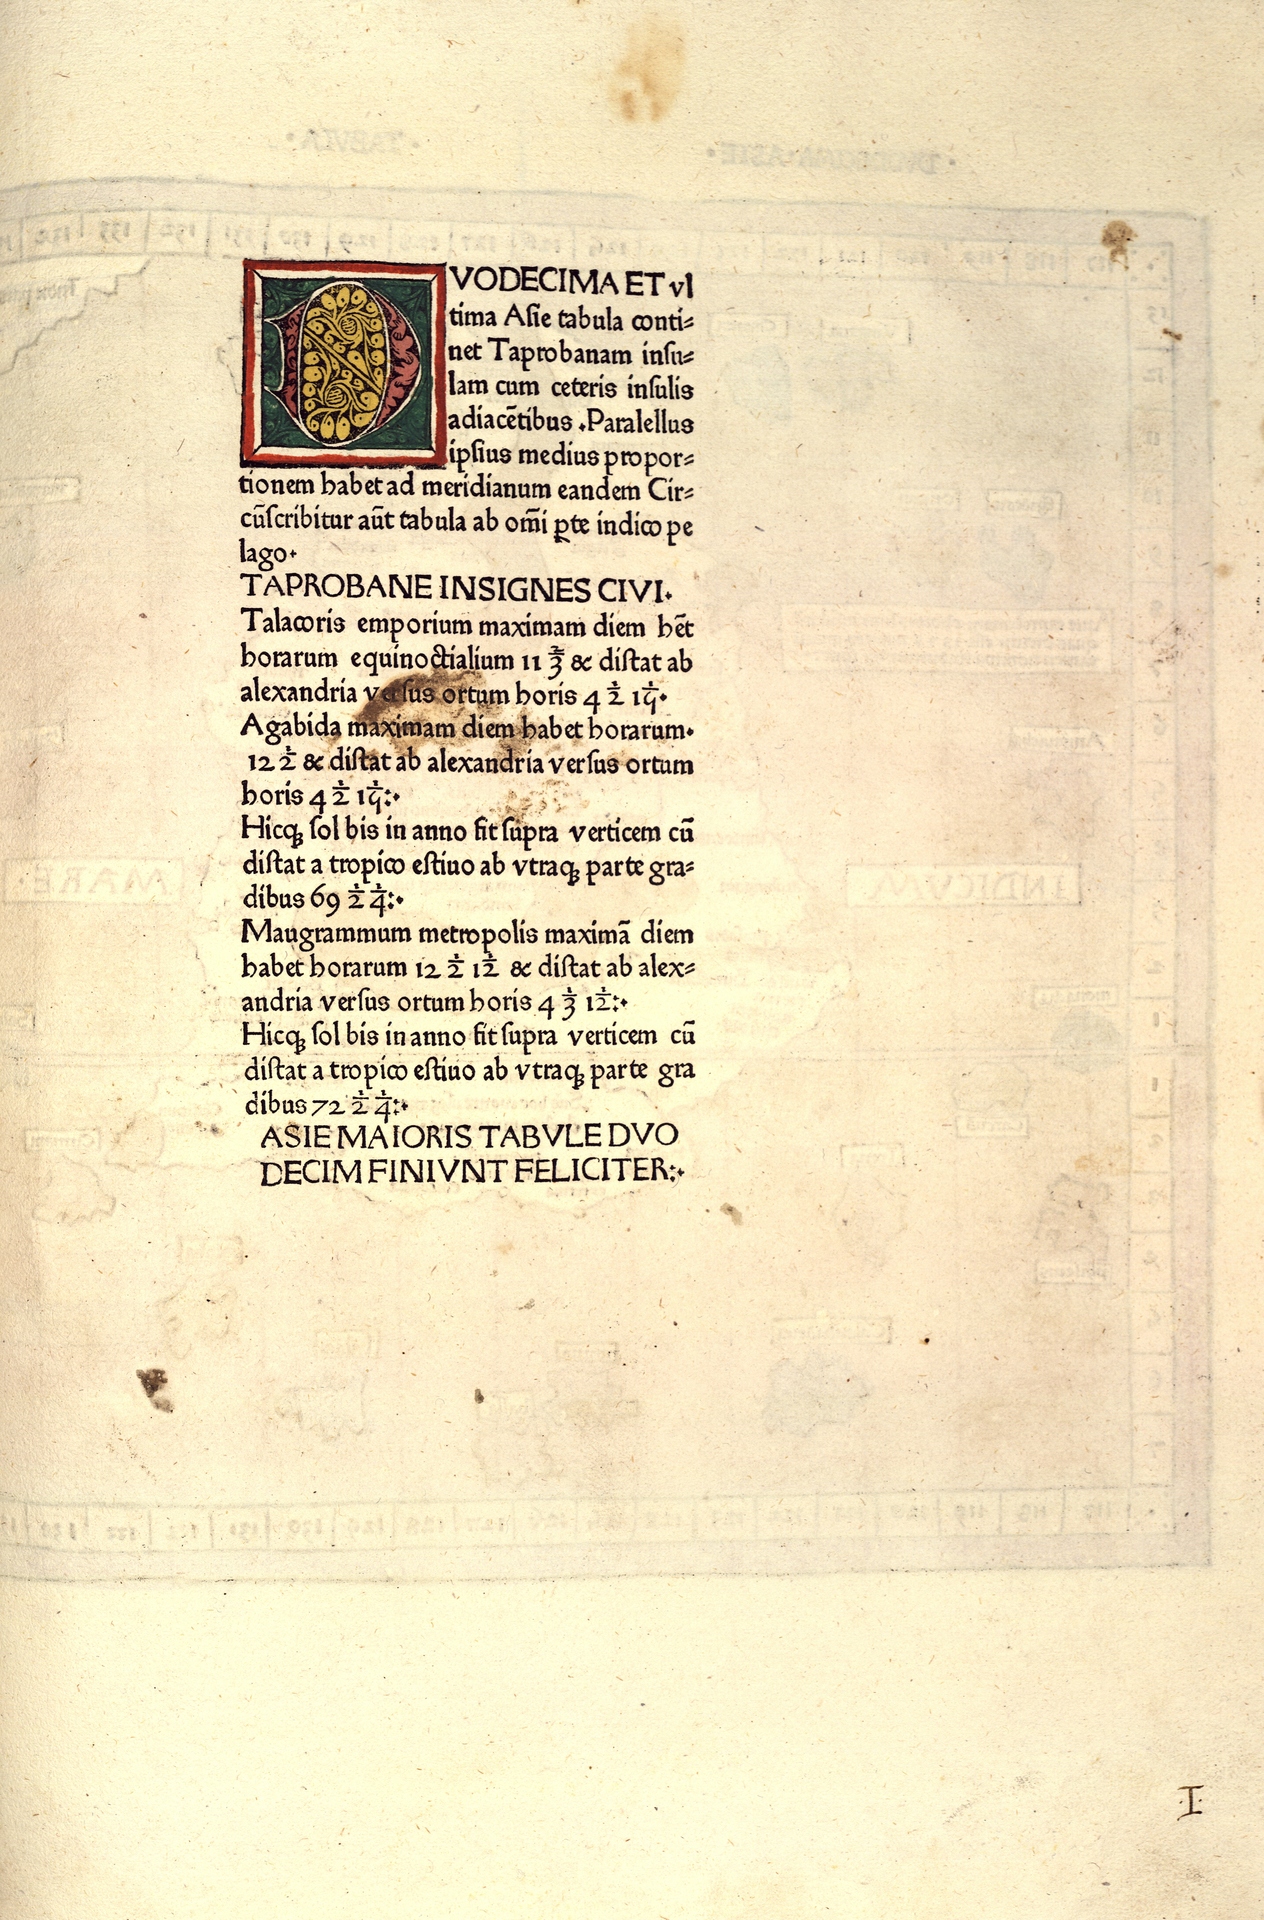 DVODECIMA ET vl
tima Aſie tabula conti⸗
net Taprobanam inſu⸗
lam cum ceteris inſulis
adiacẽtibus .Paralellus
ipſius medius propor⸗
tionem habet ad meridianum eandem Cir⸗
cũſcribitur aũt tabula ab om̃i ꝑte indico pe
lago.
TAPROBANE INSIGNES CIVI.
Talacoris emporium maximam diem hẽt
horarum equinoctialium 11 2/3 & diſtat ab
alexandria verſus ortum horis 4 1/2
Agabida maximam diem habet horarum.
12 1/2 & diſtat ab alexandria verſus ortum
horis 4 1/2
Hicq̃ ſol bis in anno fit ſupra verticem cũ
diſtat a tropico eſtiuo ab vtraq̃ parte gra⸗
dibus 69 1/2 1/4:.
Maugrammum metropolis maximã diem
habet horarum 12 1/2 1/12 & diſtat ab alex⸗
andria verſus ortum horis 4 1/3 1/12:.
Hicq̃ ſol bis in anno fit ſupra verticem cũ
diſtat a tropico eſtiuo ab vtraq̃ parte gra
dibus 72 1/2 1/4:.
ASIE MAIORIS TABVLE DVO
DECIM FINIVNT FELICITER:.
I